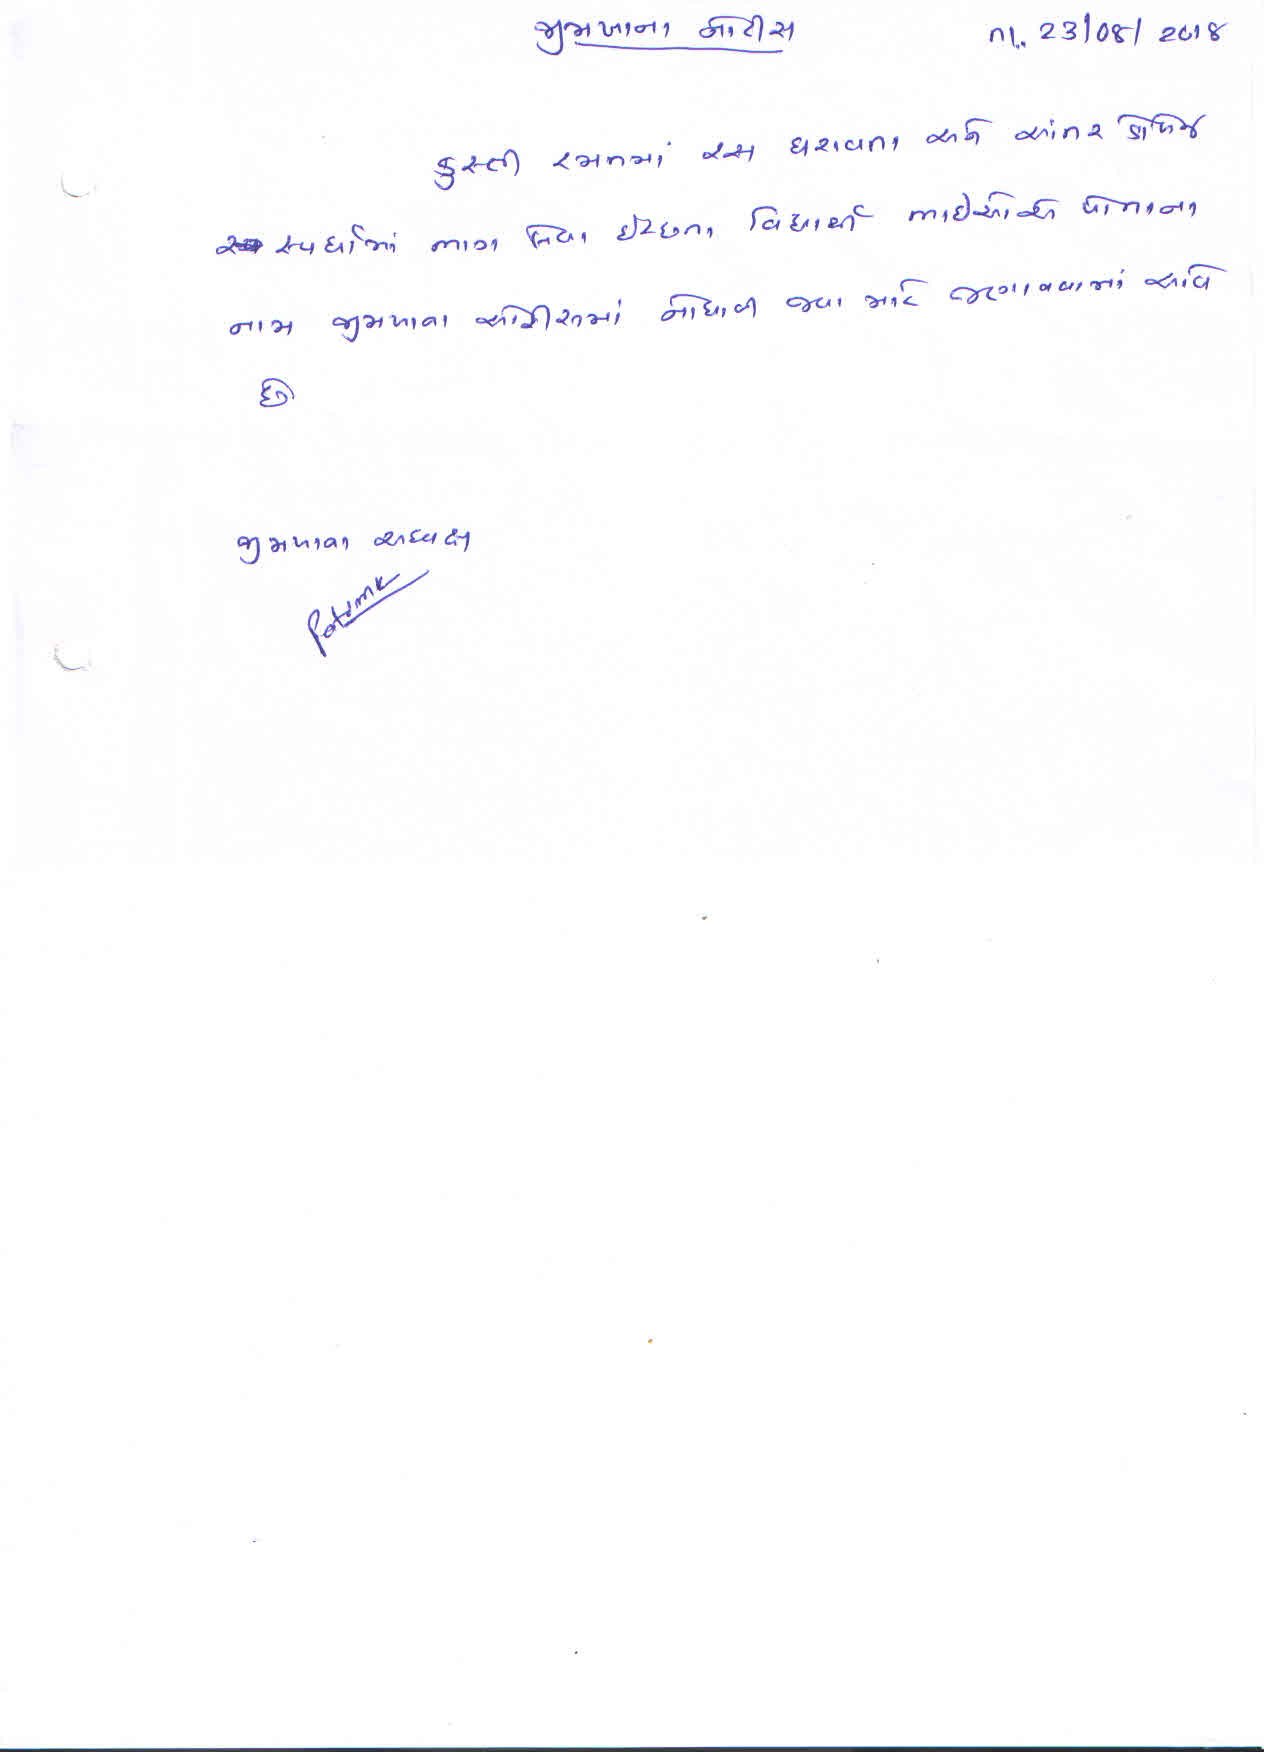 જીમખાના નોટીસ તા. 23/08/2018
કુસ્તી રમતમાં રસ ધરાવતા અને આંતર કોલેજ
સ્પર્ધામાં ભાગ લેવા ઈચ્છતા વિદ્યાર્થી ભાઈઓએ પોતાના
નામ જીમખાના ઓફીસમાં નોંધાવી જવા માટે જણાવવામાં આવે
છે
જીમખાના અધ્યક્ષ